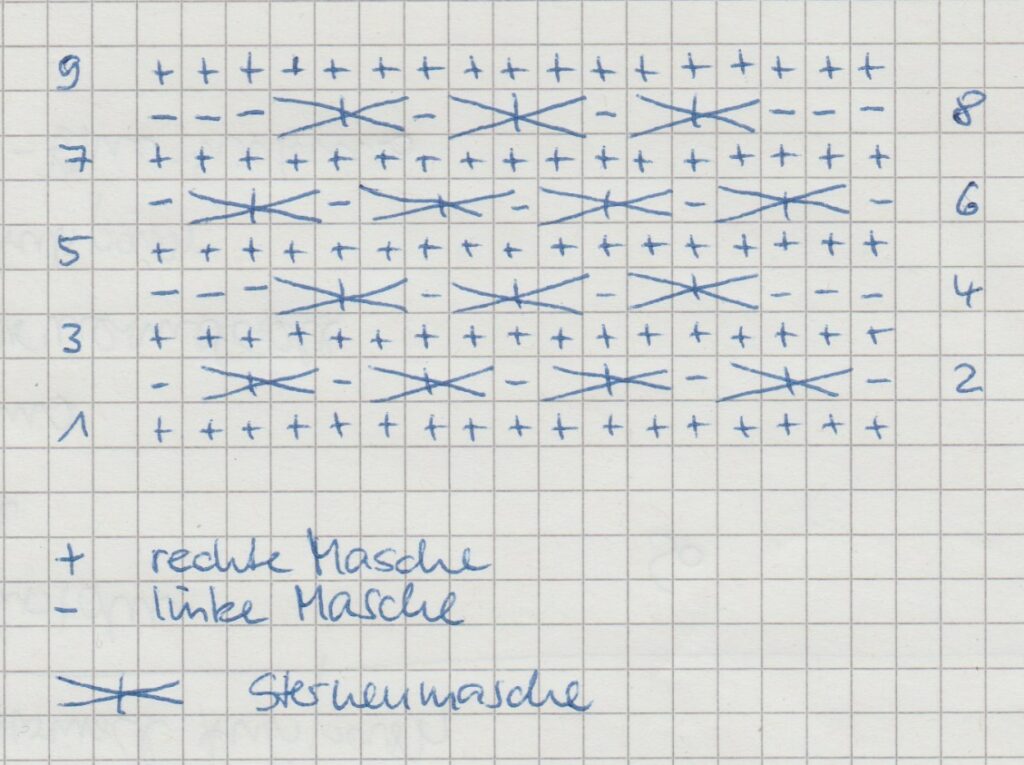 9 + + + + + + + + + + + + + + + + +
- - - ⚹ - ⚹ - ⚹ - - - 8
7 + + + + + + + + + + + + + + + + +
- ⚹ - ⚹ - ⚹ - ⚹ - 6
5 + + + + + + + + + + + + + + + + +
- - - ⚹ - ⚹ - ⚹ - - - 4
3 + + + + + + + + + + + + + + + + +
- ⚹ - ⚹ - ⚹ - ⚹ - 2
1 + + + + + + + + + + + + + + + + +
+ rechte Masche
- linke Masche
⚹ Sternenmasche